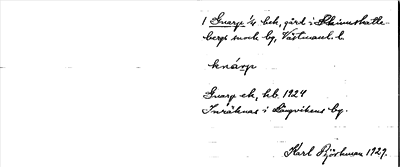 1 Snarp ¼ hek, gård i Skinnskatte-
bergs sock by, Västmanl. l.
knárp
Snarp ek, hb. 1924
Inräknas i Långvikens by.
Karl Björkman 1929.